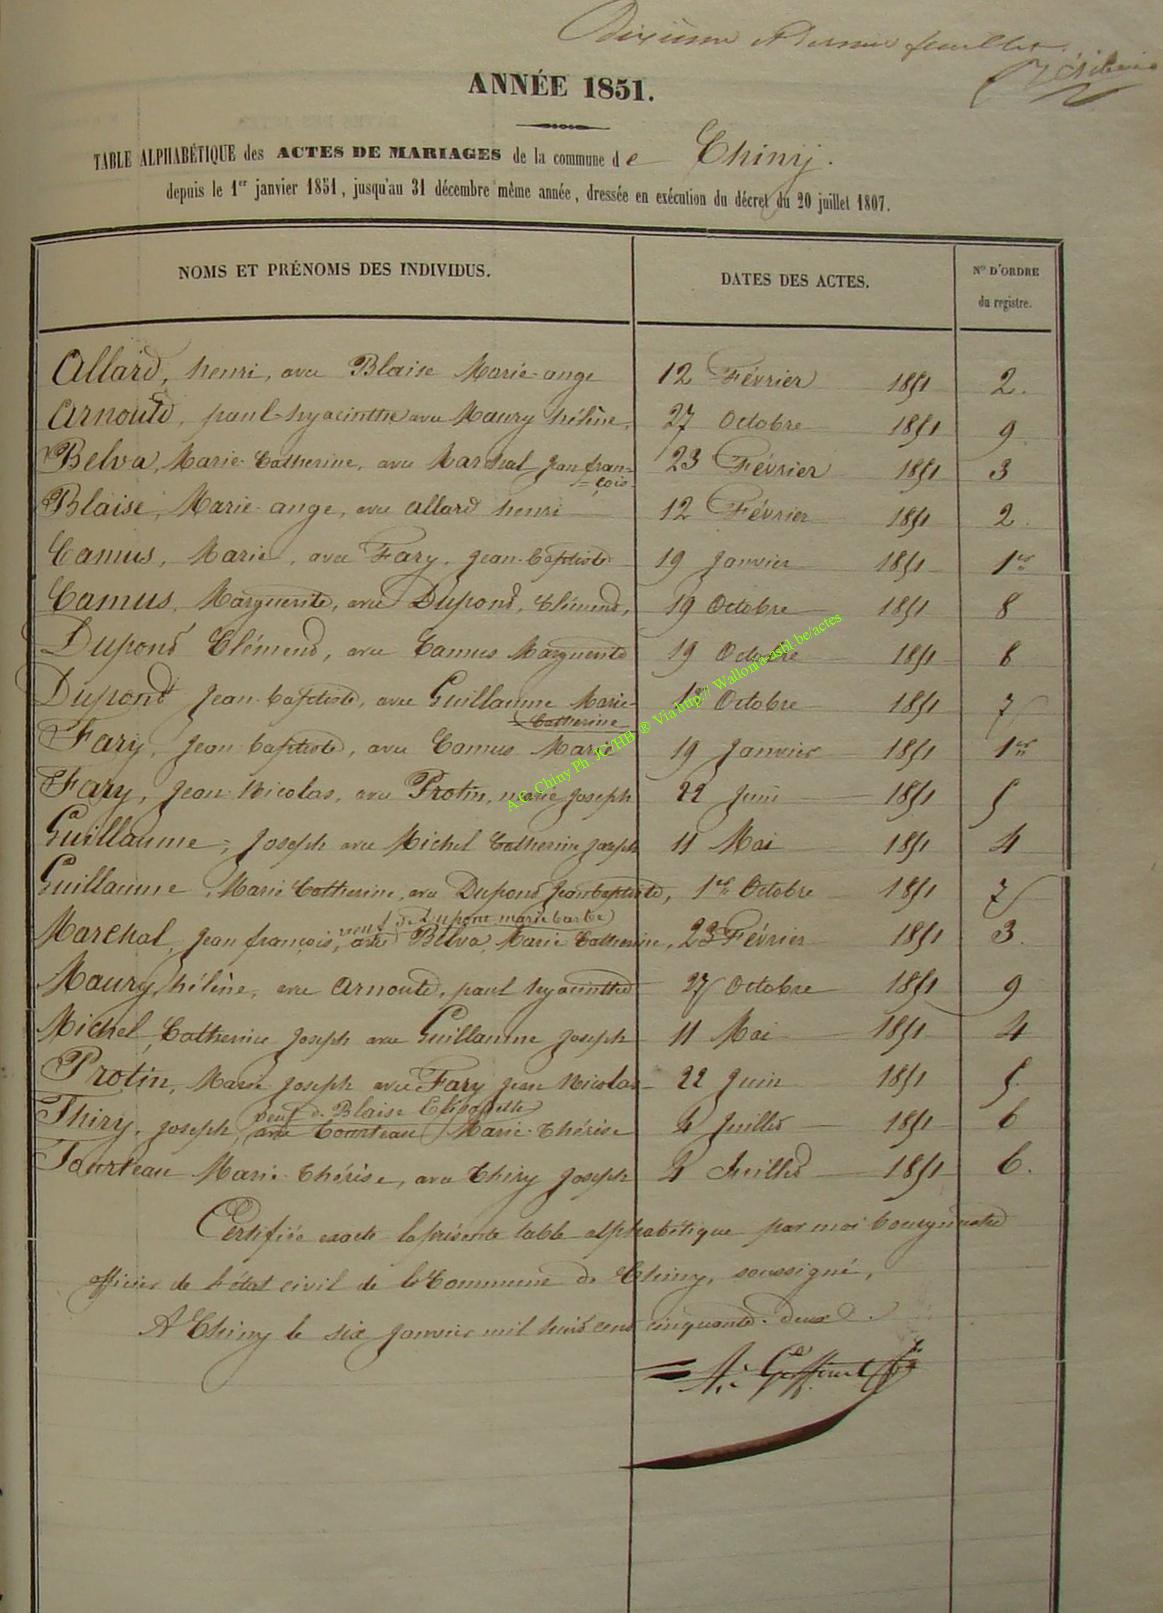 Dixième et dernier feuillet
ANNÉE 1851.
TABLE ALPHABÉTIQUE des ACTES DE MARIAGES de la commune de Chiny.
depuis le 1er janvier 1851, jusqu'au 31 décembre même année, dressée en exécution du décret du 20 juillet 1807.
NOMS ET PRÉNOMS DES INDIVIDUS. DATES DES ACTES. Nos D'ORDRE
du registre.
Allard, henri, avec Blaise Marie-ange 12 Février 1851 2.
Arnould, paul-hyacinthe avec Maury hélène, 27 Octobre 1851 9
Belva, Marie-Catherine, avec Marchal jean fran- 23 Février 1851 3
=çois
Blaise, Marie-ange, avec allard henri 12 Février 1851 2
Camus, Marie, avec Fary, jean-baptiste 19 janvier 1851 1er
Camus, Marguerite, avec Dupond, Clémend, 19 Octobre 1851 8
Dupond Clémend, avec Camus Marguerite 19 Octobre 1851 8
Dupond jean-baptiste, avec Guillaume Marie- 1er Octobre 1851 7
=Catherine
Fary, jean baptiste, avec Camus Marie 19 janvier 1851 1er
Fary, jean-Nicolas, avec Protin, marie joseph 22 juin 1851 5
Guillaume, joseph avec Michel Catherine joseph 11 Mai 1851 4
Guillaume, Marie Catherine, avec Dupond jean baptiste, 1er Octobre 1851 7
veuf de Dupont marie barbe
Marchal, jean françois, avec Belva, Marie Catherine, 23 Février 1851 3.
Maury, hélène, avec Arnould, paul hyacinthe 27 Octobre 1851 9
Michel, Catherine joseph avec Guillaume joseph 11 Mai 1851 4
Protin, Marie joseph avec Fary jean Nicolas 22 juin 1851 5.
veuf de Blaise Elisabeth
Thiry, joseph, avec Tourteau Marie-Thérèse 2 juillet 1851 6
Tourteau Marie-Thérèse, avec Thiry joseph 2 juillet 1851 6.
Certifiée exacte la présente table alphabétique par moi bourgmestre
officier de l'état civil de la Commune de Chiny, soussigné,
A Chiny le six janvier mil huit cent cinquante-deux.
A.C. Chiny Ph. JC/HH @ Via http:// Wallonia-asbl.be/actes